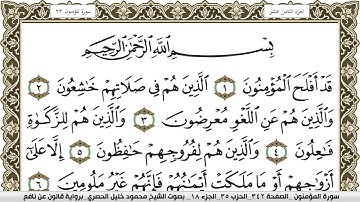 الجزء الثامن عشر سورة المؤمنون ٢٣
بِسْمِ اللَّهِ الرَّحْمَٰنِ الرَّحِيمِ
قَدْ أَفْلَحَ الْمُؤْمِنُونَ ١ الَّذِينَ هُمْ فِي صَلَاتِهِمْ خَٰشِعُونَ ٢
وَالَّذِينَ هُمْ عَنِ اللَّغْوِ مُعْرِضُونَ ٣ وَالَّذِينَ هُمْ لِلزَّكَوٰةِ
فَٰعِلُونَ ٤ وَالَّذِينَ هُمْ لِفُرُوجِهِمْ حَٰفِظُونَ ٥ إِلَّا عَلَىٰ
أَزْوَٰجِهِمْ أَوْ مَا مَلَكَتْ أَيْمَٰنُهُمْ فَإِنَّهُمْ غَيْرُ مَلُومِينَ ٦
سورة المؤمنون - الصفحة ٣٤٢ الحزب ٣٥ . الجزء ١٨ . بصوت الشيخ محمود خليل الحصري برواية قالون عن نافع